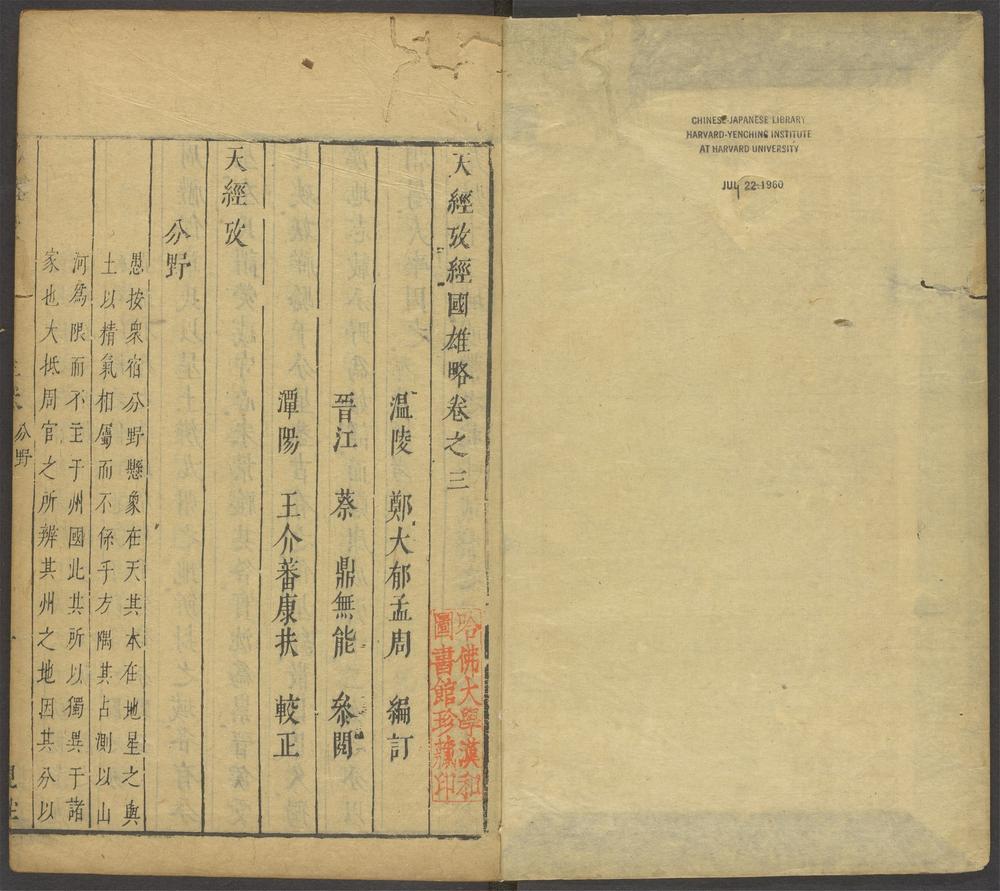 CHINESE-JAPANESE LIBRARY
HARVARD-YENCHING INSTITUTE
AT HARVARD UNIVERSITY
JUL 22 1960
天經攷經國雄略卷之三
溫陵 鄭大郁孟周 編訂
晉江 蔡 鼎無能 叅閱
潭陽 王介蕃康扶 較正
哈佛大學漢和
圖書館珍藏印
天經攷
分野
愚按衆宿分野懸象在天其本在地星之與
土以精氣相屬而不係乎方隅其占測以山
河爲限而不主于州國此其所以獨異于諸
家也大抵周官之所辨其州之地因其分以
分野